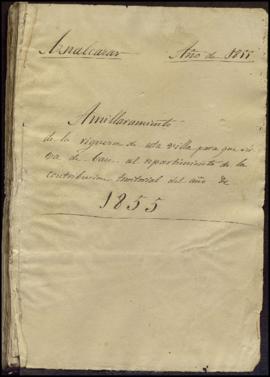 Aznalcazar Año de 1855
Amillaramiento
de la riqueza de esta villa para que sir
va de base al repartimiento de la
contribucion territorial del año de
1855